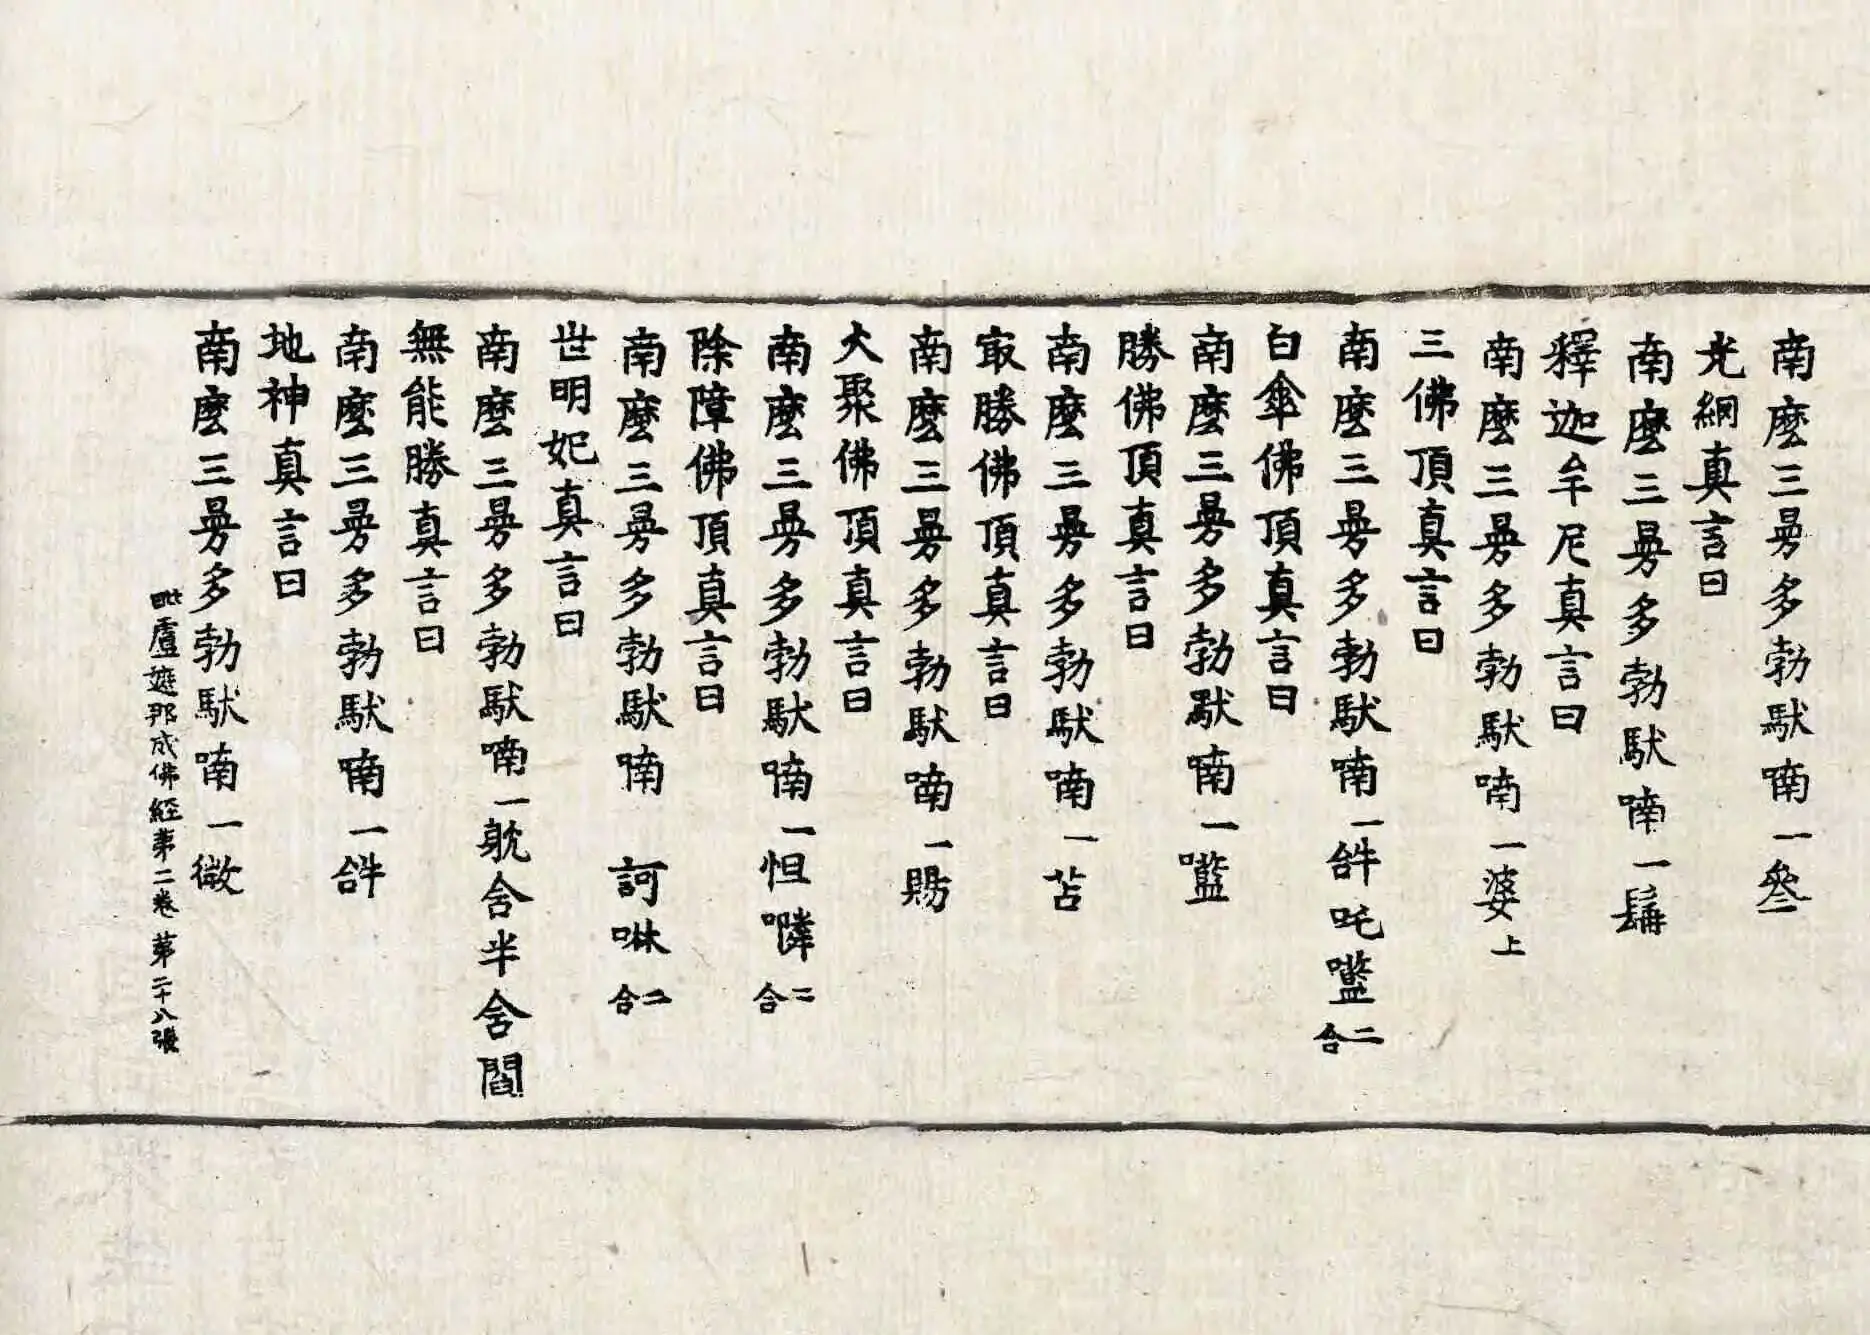 南麽三曼多勃馱喃一叁
光網真言曰
南麽三曼多勃馱喃一髯
釋迦牟尼真言曰
南麽三曼多勃馱喃一婆上
三佛頂真言曰
南麽三曼多勃馱喃一𤙖吒嚂二合
白傘佛頂真言曰
南麽三曼多勃馱喃一嚂
勝佛頂真言曰
南麽三曼多勃馱喃一苫
㝡勝佛頂真言曰
南麽三曼多勃馱喃一賜
大聚佛頂真言曰
南麽三曼多勃馱喃一怛噒二合
除障佛頂真言曰
南麽三曼多勃馱喃 訶啉二合
世明妃真言曰
南麽三曼多勃馱喃一躭含半含閻
無能勝真言曰
南麽三曼多勃馱喃一𤙖
地神真言曰
南麽三曼多勃馱喃一微
毗盧遮那成佛經第二卷 第二十八張